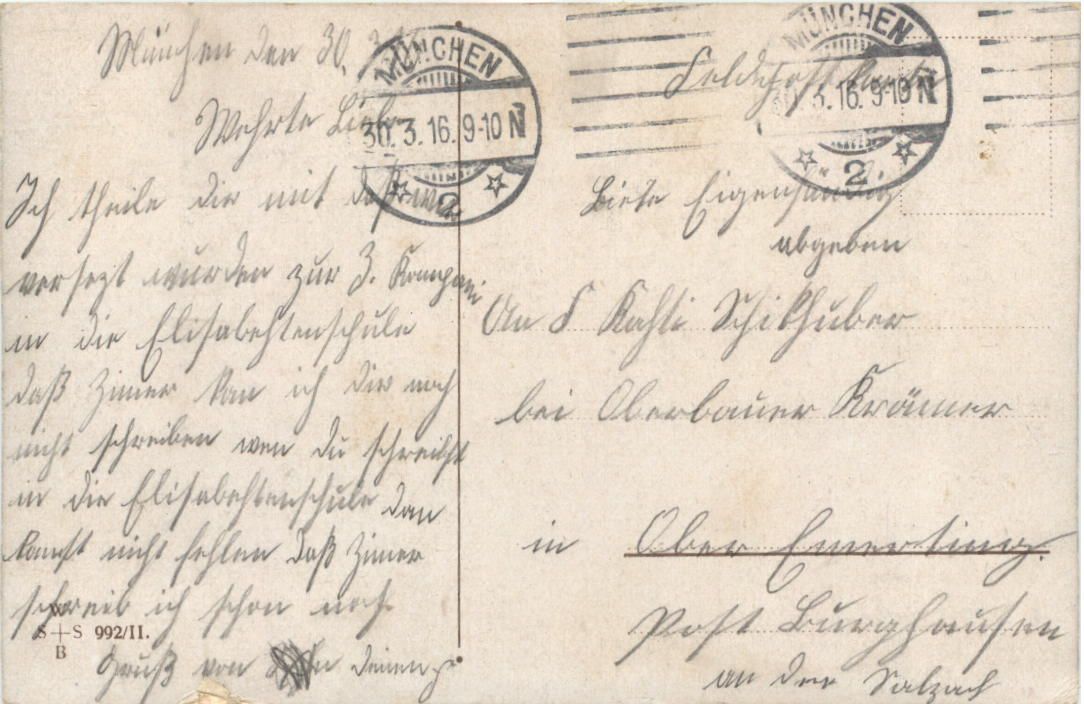 München den 30. 3.
Wehrte Liebe
Ich theile dir mit daß wir
versezt wurden zur 3. Kompani
in die Elisabehtenschule
daß Zimer kan ich dir noch
nicht schreiben wen du schreibst
in die Elisabehtenschule dan
kanst nicht fehlen daß Zimer
schreib ich schon noch
Gruß von deinen
W
S S 992/II.
B
MÜNCHEN
30. 3. 16. 9-10 N
2
MÜNCHEN
3. 16. 9-10 N
2.
Feldpost karte
Biete Eigenhändig
abgeben
An F Kahti Schikhuber
bei Oberbauer Krämer
in Ober Emerting.
Post Burghausen
an der Salzach